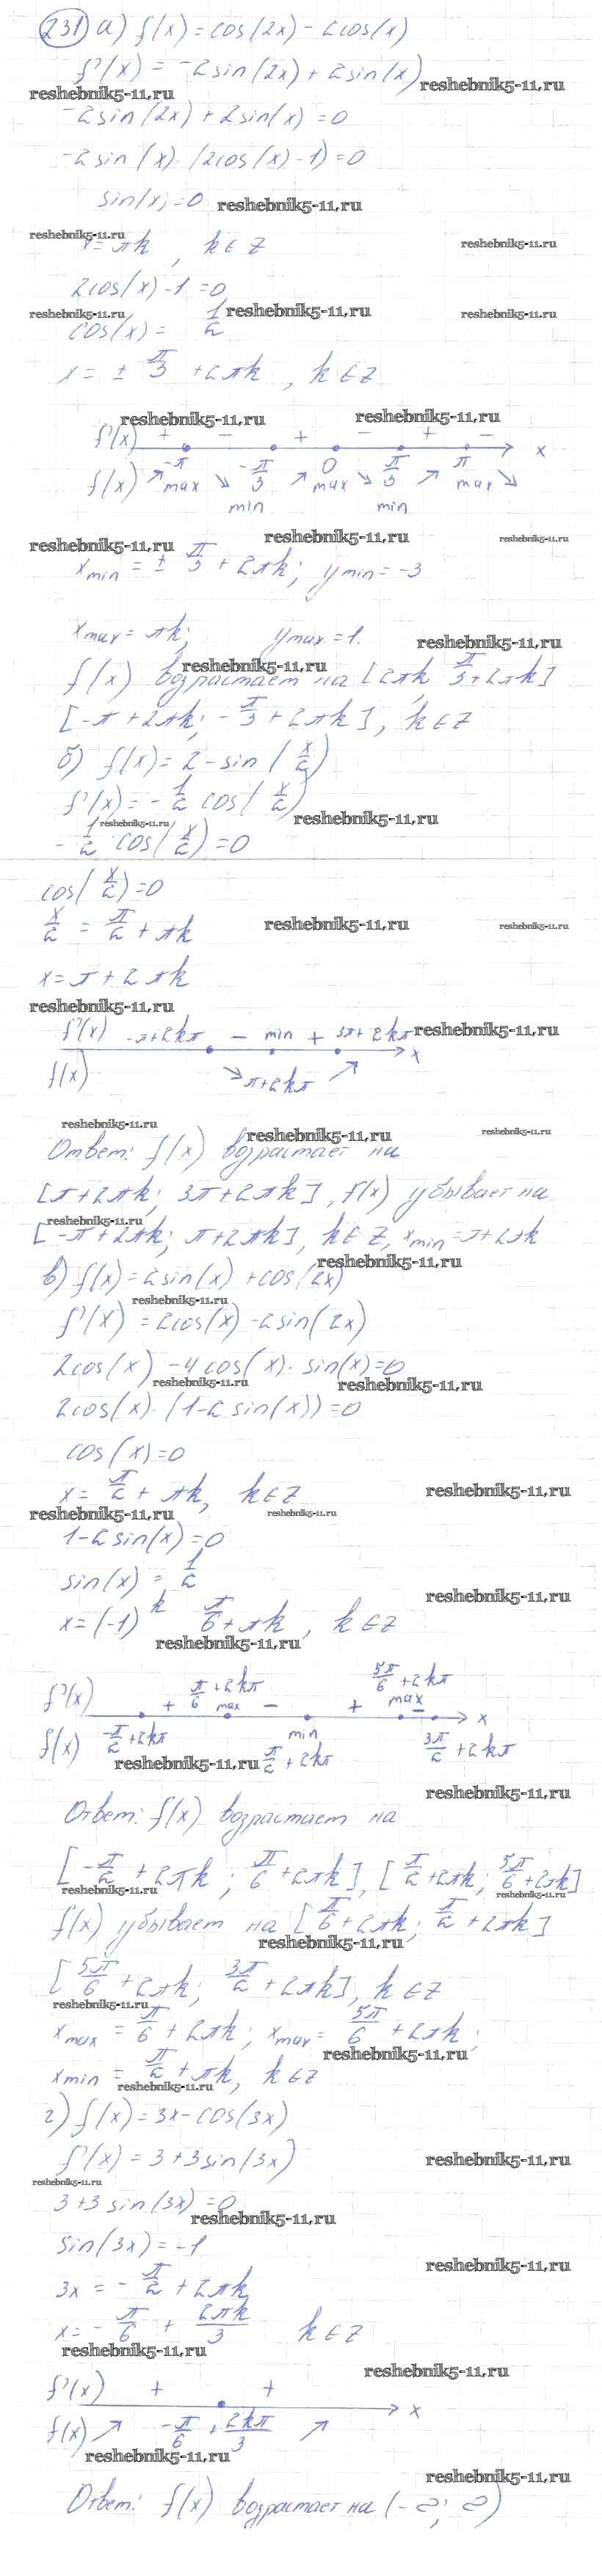 231 а) f(x) = cos(2x) - 2cos(x)
f'(x) = -2sin(2x) + 2sin(x)
reshebnik5-11.ru reshebnik5-11.ru
-2sin(2x) + 2sin(x) = 0
-2sin(x)·(2cos(x)-1)=0
sin(x)=0 reshebnik5-11.ru
reshebnik5-11.ru
x=πk, k∈Z reshebnik5-11.ru
2cos(x)-1=0
reshebnik5-11.ru reshebnik5-11.ru reshebnik5-11.ru
cos(x)= 1/2
x= ± π/3 + 2πk, k∈Z
reshebnik5-11.ru reshebnik5-11.ru
f'(x) + - + - + - x
f(x) ↗ -π max ↘ -π/3 min ↗ 0 max ↘ π/3 min ↗ π max ↘
reshebnik5-11.ru reshebnik5-11.ru reshebnik5-11.ru
xmin = ± π/3 + 2πk; ymin = -3
xmax = πk; ymax = 1. reshebnik5-11.ru
reshebnik5-11.ru
f(x) возрастает на [2πk; π/3+2πk]
[-π+2πk; -π/3+2πk], k∈Z
б) f(x)=2-sin(x/2)
f'(x)=-1/2 cos(x/2)
reshebnik5-11.ru reshebnik5-11.ru
-1/2 cos(x/2)=0
cos(x/2)=0
x/2 = π/2 + πk reshebnik5-11.ru reshebnik5-11.ru
x=π+2πk
reshebnik5-11.ru
f'(x) -π+2kπ - min + 3π+2kπ reshebnik5-11.ru
x
f(x) ↘ π+2kπ ↗
reshebnik5-11.ru reshebnik5-11.ru reshebnik5-11.ru
Ответ: f(x) возрастает на
[π+2πk; 3π+2πk], f(x) убывает на
reshebnik5-11.ru
[-π+2πk; π+2πk], k∈Z, xmin=π+2πk
reshebnik5-11.ru
в) f(x)=2sin(x)+cos(2x)
reshebnik5-11.ru
f'(x)=2cos(x)-2sin(2x)
2cos(x)-4cos(x)·sin(x)=0
reshebnik5-11.ru reshebnik5-11.ru
2cos(x)·(1-2sin(x))=0
cos(x)=0
x= π/2 + πk, k∈Z reshebnik5-11.ru
reshebnik5-11.ru reshebnik5-11.ru
1-2sin(x)=0
sin(x)= 1/2
x=(-1)^k π/6+πk, k∈Z reshebnik5-11.ru
reshebnik5-11.ru
f'(x) + π/6+2kπ max - + 5π/6+2kπ max - x
f(x) -π/2+2kπ min π/2+2kπ 3π/2+2kπ
reshebnik5-11.ru
reshebnik5-11.ru
Ответ: f(x) возрастает на
[-π/2+2πk; π/6+2πk], [π/2+2πk; 5π/6+2πk]
reshebnik5-11.ru reshebnik5-11.ru
f(x) убывает на [π/6+2πk; π/2+2πk]
reshebnik5-11.ru
[5π/6+2πk; 3π/2+2πk], k∈Z
reshebnik5-11.ru
xmax = π/6+2πk; xmax= 5π/6+2πk;
reshebnik5-11.ru
xmin = π/2+πk, k∈Z
reshebnik5-11.ru
г) f(x)=3x-cos(3x)
f'(x)=3+3sin(3x) reshebnik5-11.ru
reshebnik5-11.ru
3+3sin(3x)=0
reshebnik5-11.ru
sin(3x)=-1
reshebnik5-11.ru
3x=-π/2+2πk
x=-π/6+2πk/3 k∈Z
reshebnik5-11.ru
reshebnik5-11.ru
f'(x) + + x
f(x) ↗ -π/6+2kπ/3 ↗
reshebnik5-11.ru
reshebnik5-11.ru
Ответ: f(x) возрастает на (-∞; ∞)